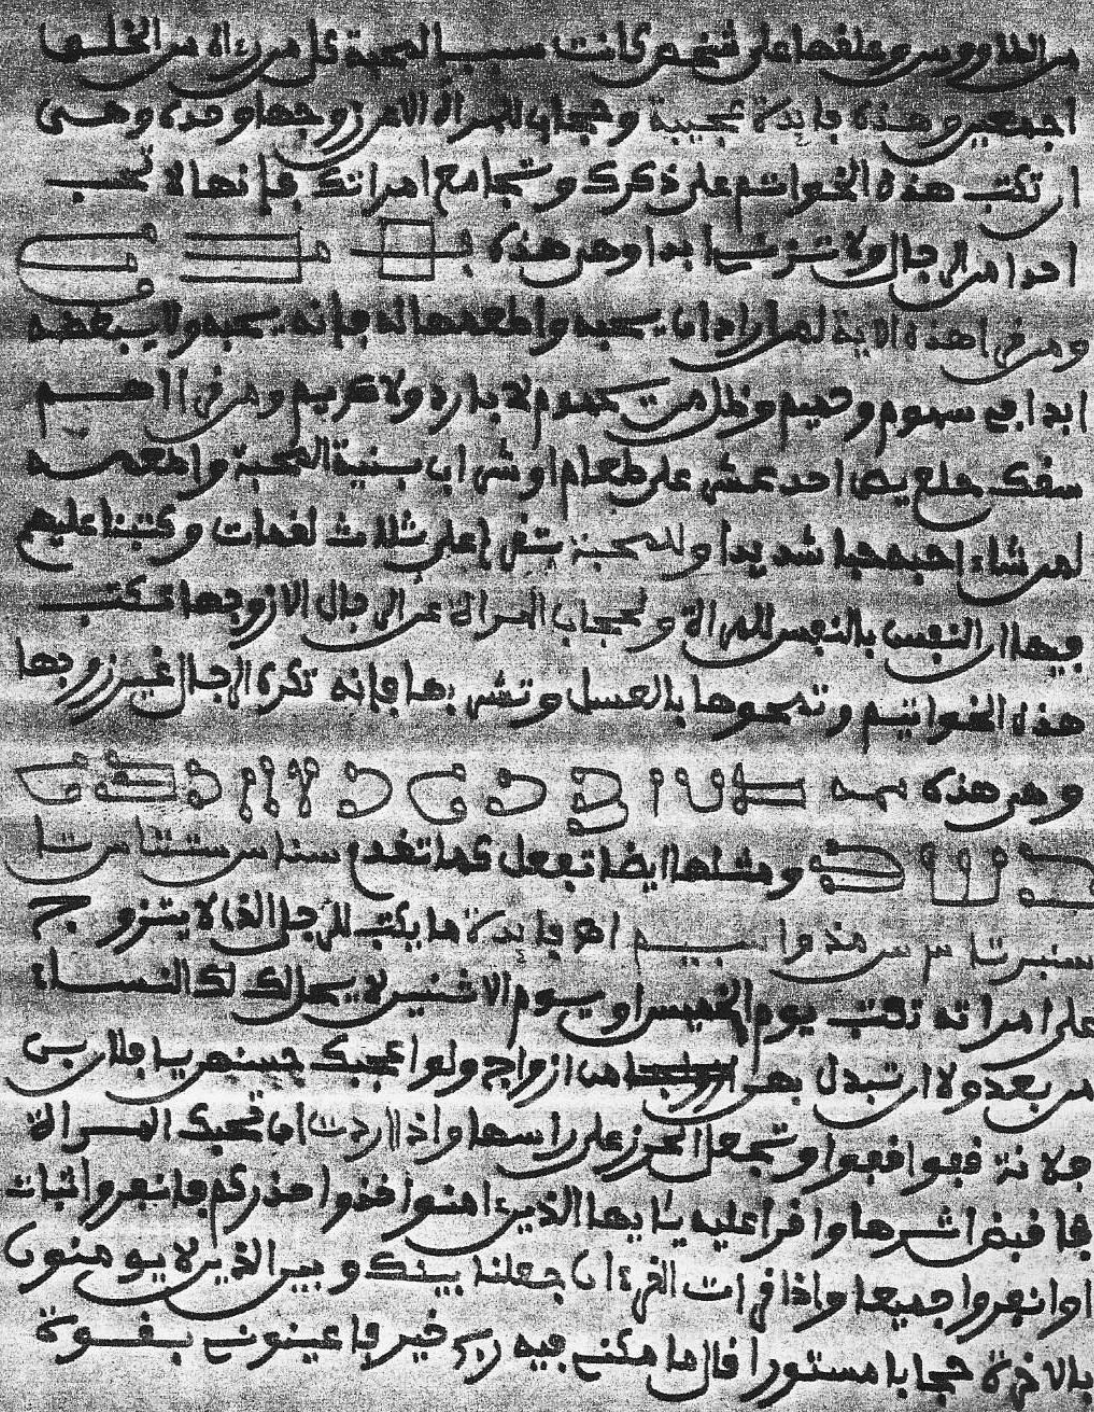 من الطاووس وعلقها على شخص كانت سببا لمحبة كل من رءاه من الخلق
اجمعين وهذه فايدة عجيبة وحجاب للمراة الا من زوجها وحده وهي
ان تكتب هذه الخواتم على ذكرك وتجامع امراتك فإنها لا تحب
احدا من الرجال ولا تزني ابدا وهي هذه
ومن قرا هذه الاية لمن اراد ان يحبه واطعمها له فإنه يحبه ولا يبغضه
ابدا في سموم وحميم وظل من يحموم لا بارد ولا كريم ومن قرا اهم
سقك حلع يص احد عشر على طعام او شراب بنية المحبة واطعمه
لمن شاء احبه حبا شديدا وللمحبة تقرا على ثلاث لقمات وكتبنا عليهم
فيها ان النفس بالنفس للمراة ولحجاب المراة عن الرجال الا زوجها تكتب
هذه الخواتيم وتمحوها بالعسل وتشربها فإنه تكره الرجال غير زوجها
وهي هذه
ومثلها ايضا تفعل كما تقدم
فايدة ما يكتب للرجل الذي لا يتزوج
على امراته تكتب يوم الخميس او يوم الاثنين لا يحل لك النساء
من بعد ولا ان تبدل بهن من ازواج ولو اعجبك حسنهن يا فلان بن
فلانة قفوا قفوا وتجعل الحرز على راسها واذا اردت ان تحبك المراة
فاقبض اثرها واقرا عليه يا ايها الذين ءامنوا خذوا حذركم فانفروا ثبات
او انفروا جميعا واذا قرات القرءان جعلنا بينك وبين الذين لا يومنون
بالاخرة حجابا مستورا قال ما مكني فيه ربي خير فاعينوني بقوة